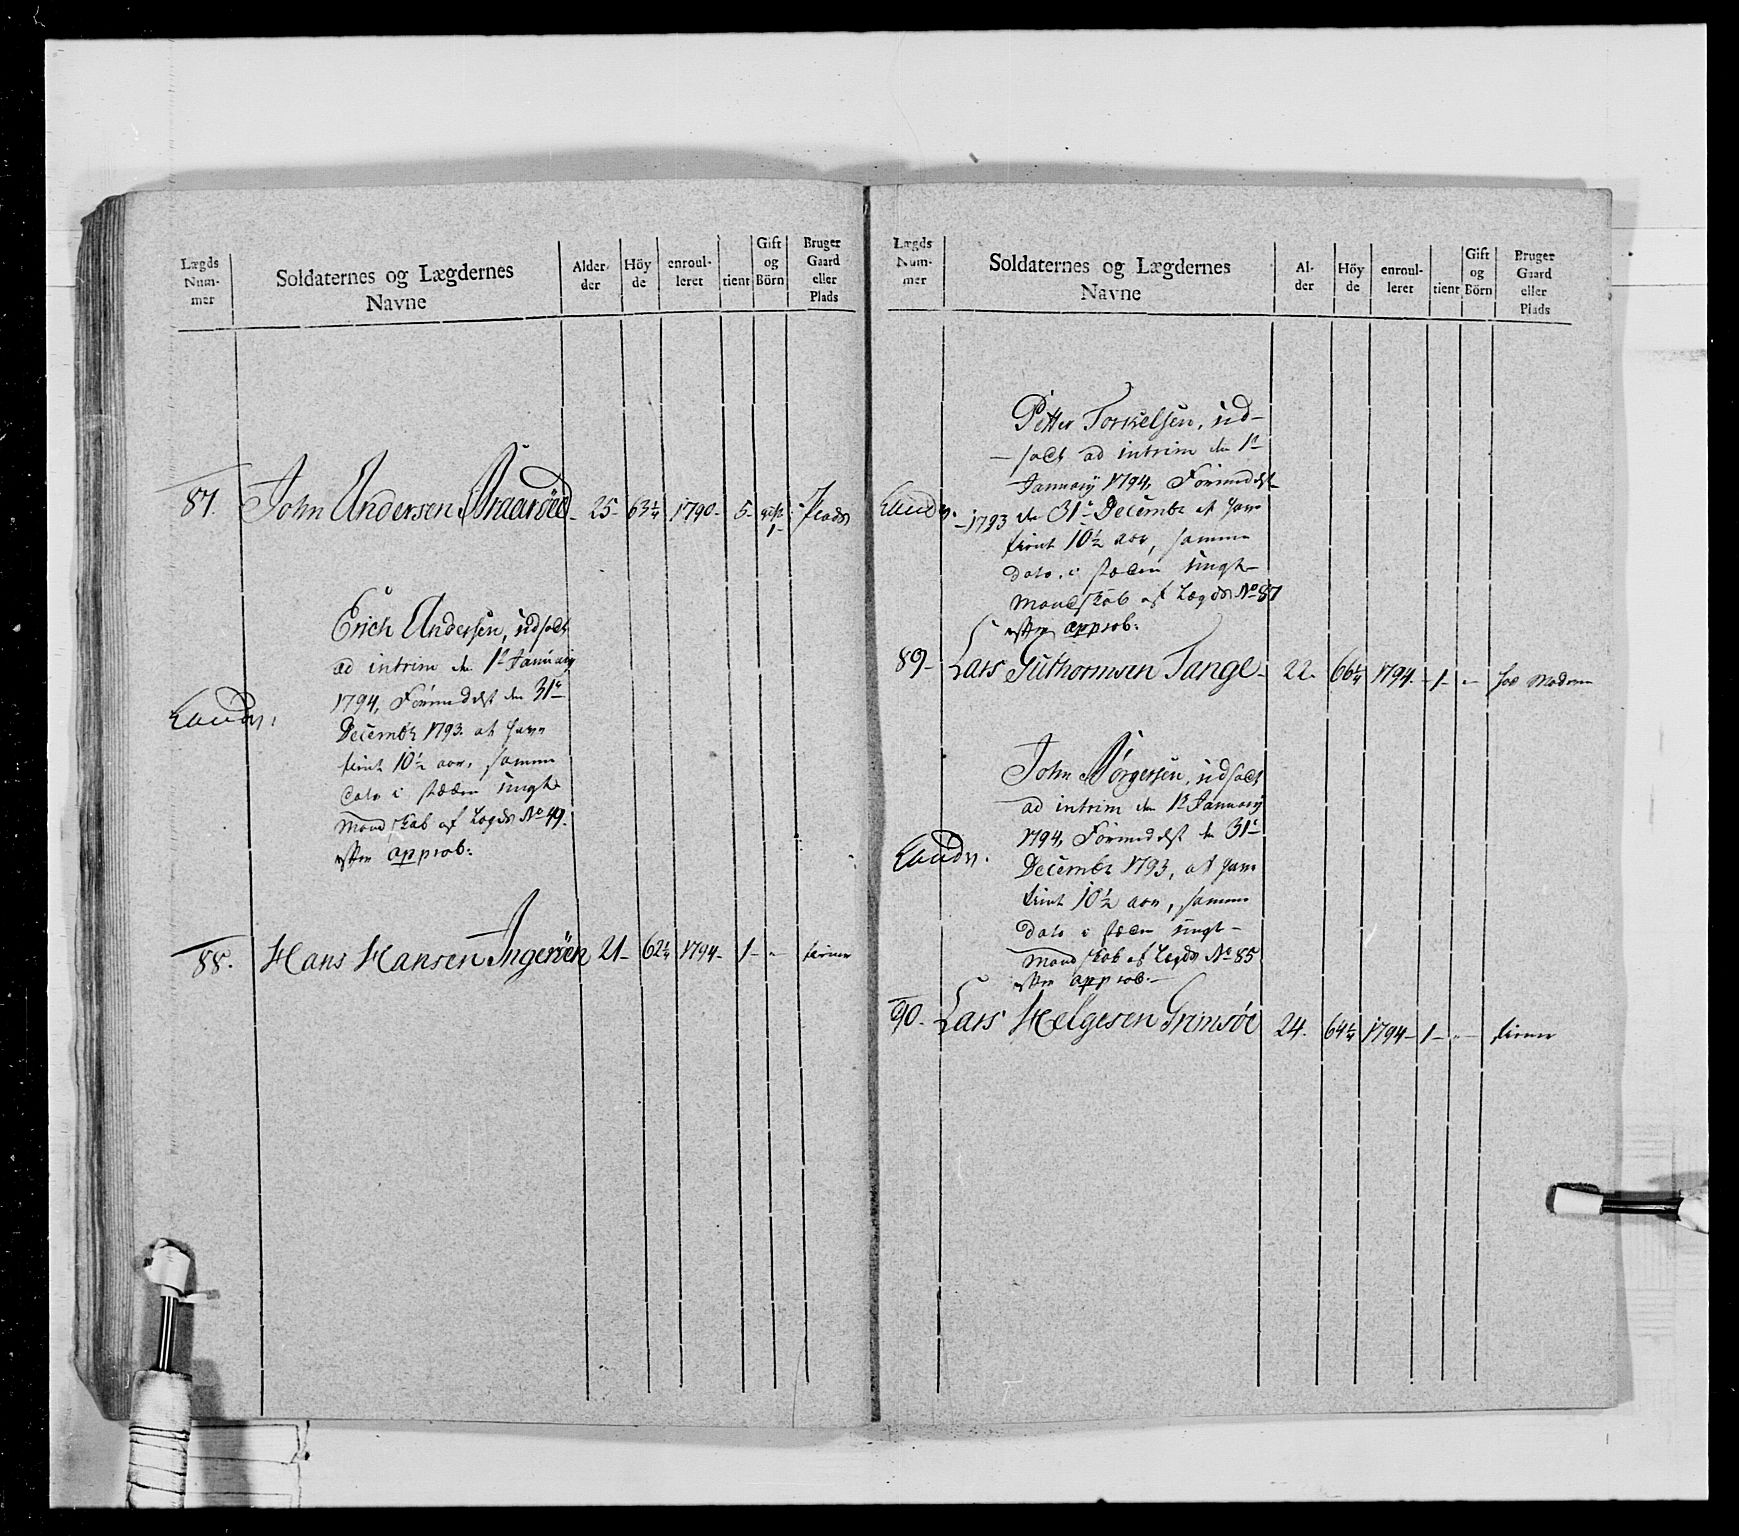 Lægds Num- mer
Soldaternes og Lægdernes Navne
Alder- der
Höy de
enroul- leret
tient
Gift og Börn
Bruger Gaard eller Plads
87. John Andersen Braarød 25- 63¼ 1790- 5- gift 1- Plads
Erich Andersen, udsatt
ad intrim den 1t Januarÿ
1794, Formedelst den 31te
Landv:
Decembr 1793. at have
tient 10½ aar, samme
dato i stæden ungt
Mandskab af Lægds No 49.
efter approb:
88. Hans Hansen Ingerøen 21- 62¼ 1794- 1- "
Lægds Num- mer
Soldaternes og Lægdernes Navne
Al- der
Höy de
enroul- leret
tient
Gift og Börn
Bruger Gaard eller Plads
Petter Torkelsen, ud-
- satt ad intrim den 1t
Januarÿ 1794, Formedelst
Landv.
- 1793 den 31te Decembr at have
tient 10½ aar, samme
dato i stæden ungt-
Mandskab af Lægds No 87
efter approb:
89- Lars Guthormsen Tange- 22- 66¼ 1794- 1- - hos Moderen
John Børgersen, udsatt
ad intrim den 1t Januarÿ
1794, Formedelst den 31te
Landv.
Decembr 1793, at have
tient 10½ aar, samme
dato i stæden ungt-
Mandskab af Lægds No 85
efter approb:-
90. Lars Helgesen Grimsøe 24. 64¼ 1794- 1- "-